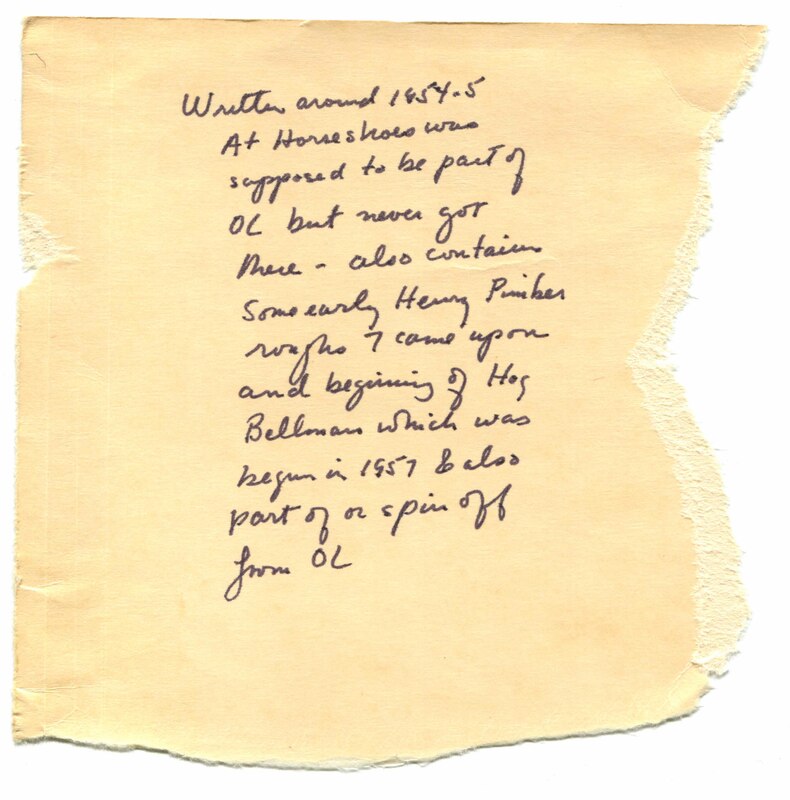 Written around 1954-5
At Horseshoes was
supposed to be part of
OL but never got
there - also contains
some early Henry Pimber
roughs I came upon
and beginning of Hog
Bellman which was
begun in 1957 & also
part of or spin off
from OL